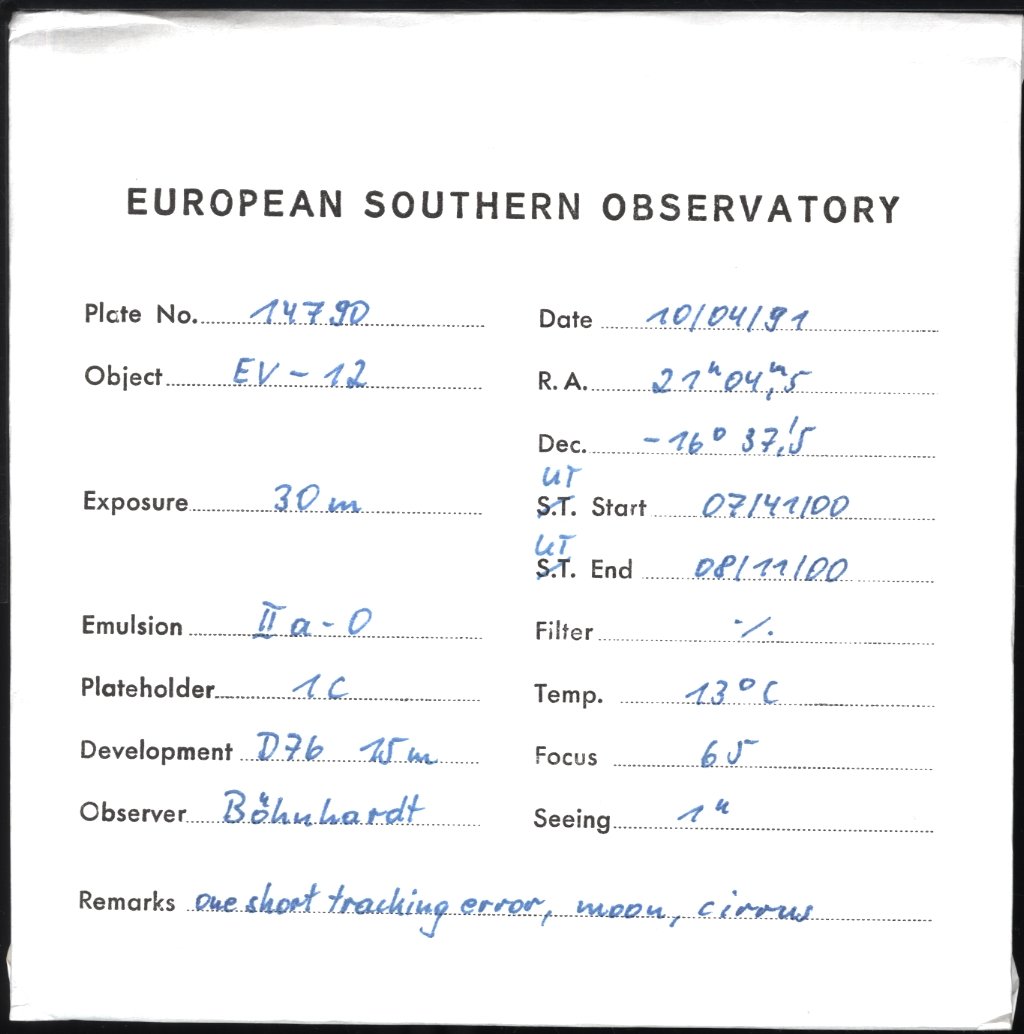 EUROPEAN SOUTHERN OBSERVATORY
Plate No. 14790 Date 10/04/91
Object EV - 12 R.A. 21ʰ04,ᵐ5
Dec. -16° 37,'5
UT
Exposure 30 m S.T. Start 07/41/00
UT
S.T. End 08/11/00
Emulsion II a - O Filter ·/.
Plateholder 1C Temp. 13°C
Development D76 15 m Focus 65
Observer Böhnhardt Seeing 1"
Remarks one short tracking error, moon, cirrus